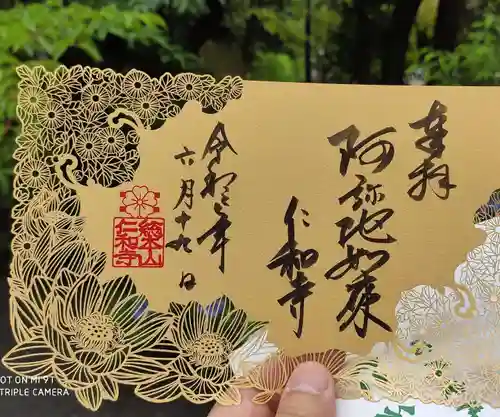 奉拝
阿弥陀如来
仁和寺
令和三年
六月十九日
總本山
仁和寺
OT ON MI 9T
TRIPLE CAMERA